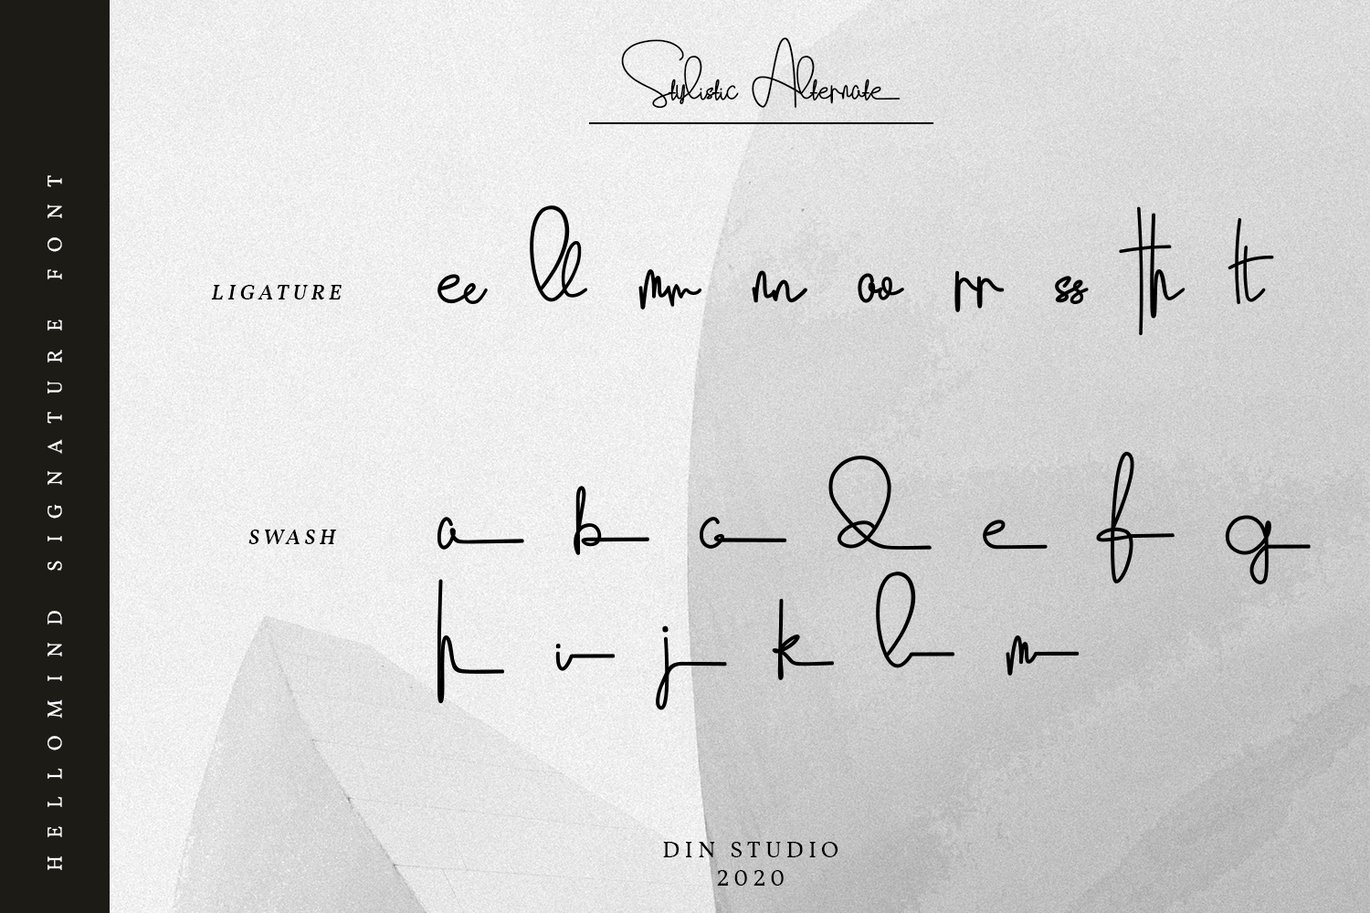 Stylistic Alternate
HELLOMIND SIGNATURE FONT
LIGATURE
ee ll mm nn oo rr ss th tt
SWASH
a b c d e f g
h i j k l m
DIN STUDIO
2020